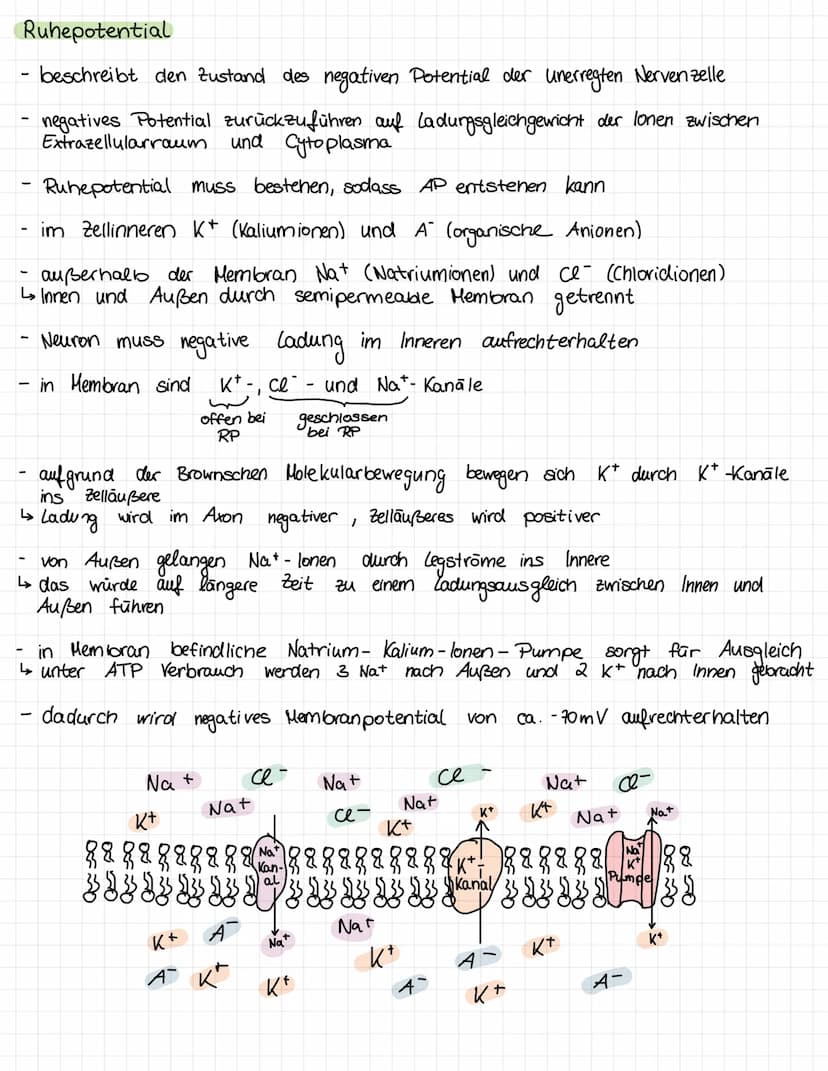 Ruhepotential
- beschreibt den Zustand des negativen Potential der unerregten Nervenzelle
- negatives Potential zurückzuführen auf Ladungsgleichgewicht der Ionen zwischen
Extrazellularraum und Cytoplasma
- Ruhepotential muss bestehen, sodass AP entstehen kann
- im Zellinneren K+ (Kaliumionen) und A- (organische Anionen)
- außerhalb der Membran Na+ (Natriumionen) und Cl- (Chloridionen)
↳ Innen und Außen durch semipermeable Membran getrennt
- Neuron muss negative Ladung im Inneren aufrechterhalten
- in Membran sind K+-, Cl- - und Na+- Kanäle
offen bei geschlossen
RP bei RP
- aufgrund der Brownschen Molekularbewegung bewegen sich K+ durch K+-Kanäle
ins Zelläußere
↳ Ladung wird im Axon negativer, Zelläußeres wird positiver
- von Außen gelangen Na+-Ionen durch Legströme ins Innere
↳ das würde auf längere Zeit zu einem Ladungsausgleich zwischen Innen und
Außen führen
- in Membran befindliche Natrium-Kalium-Ionen-Pumpe sorgt für Ausgleich
↳ unter ATP Verbrauch werden 3 Na+ nach Außen und 2 K+ nach Innen gebracht
- dadurch wird negatives Membranpotential von ca. -70mV aufrechterhalten
Na+ Cl- Na+ Cl- Na+ Cl-
K+ Na+ Cl- Na+ K+ K+ K+ Na+ Na+
Na+
Kan-
al
K+-
Kanal
Na+
K+
Pumpe
K+ A- Na+ Na+ K+ A- K+ K+
A- K+ K+ A- K+ A-